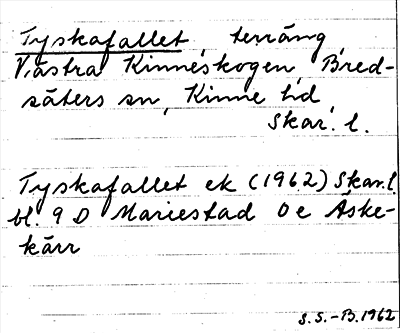 Tyskafallet, terräng,
Västra Kinneskogen, Bred-
säters sn, Kinne hd,
Skar. l.
Tyskafallet ek (1962) Skar. l.
bl. 9 D Mariestad 0 e Äske-
kärr
S. S. - B. 1962